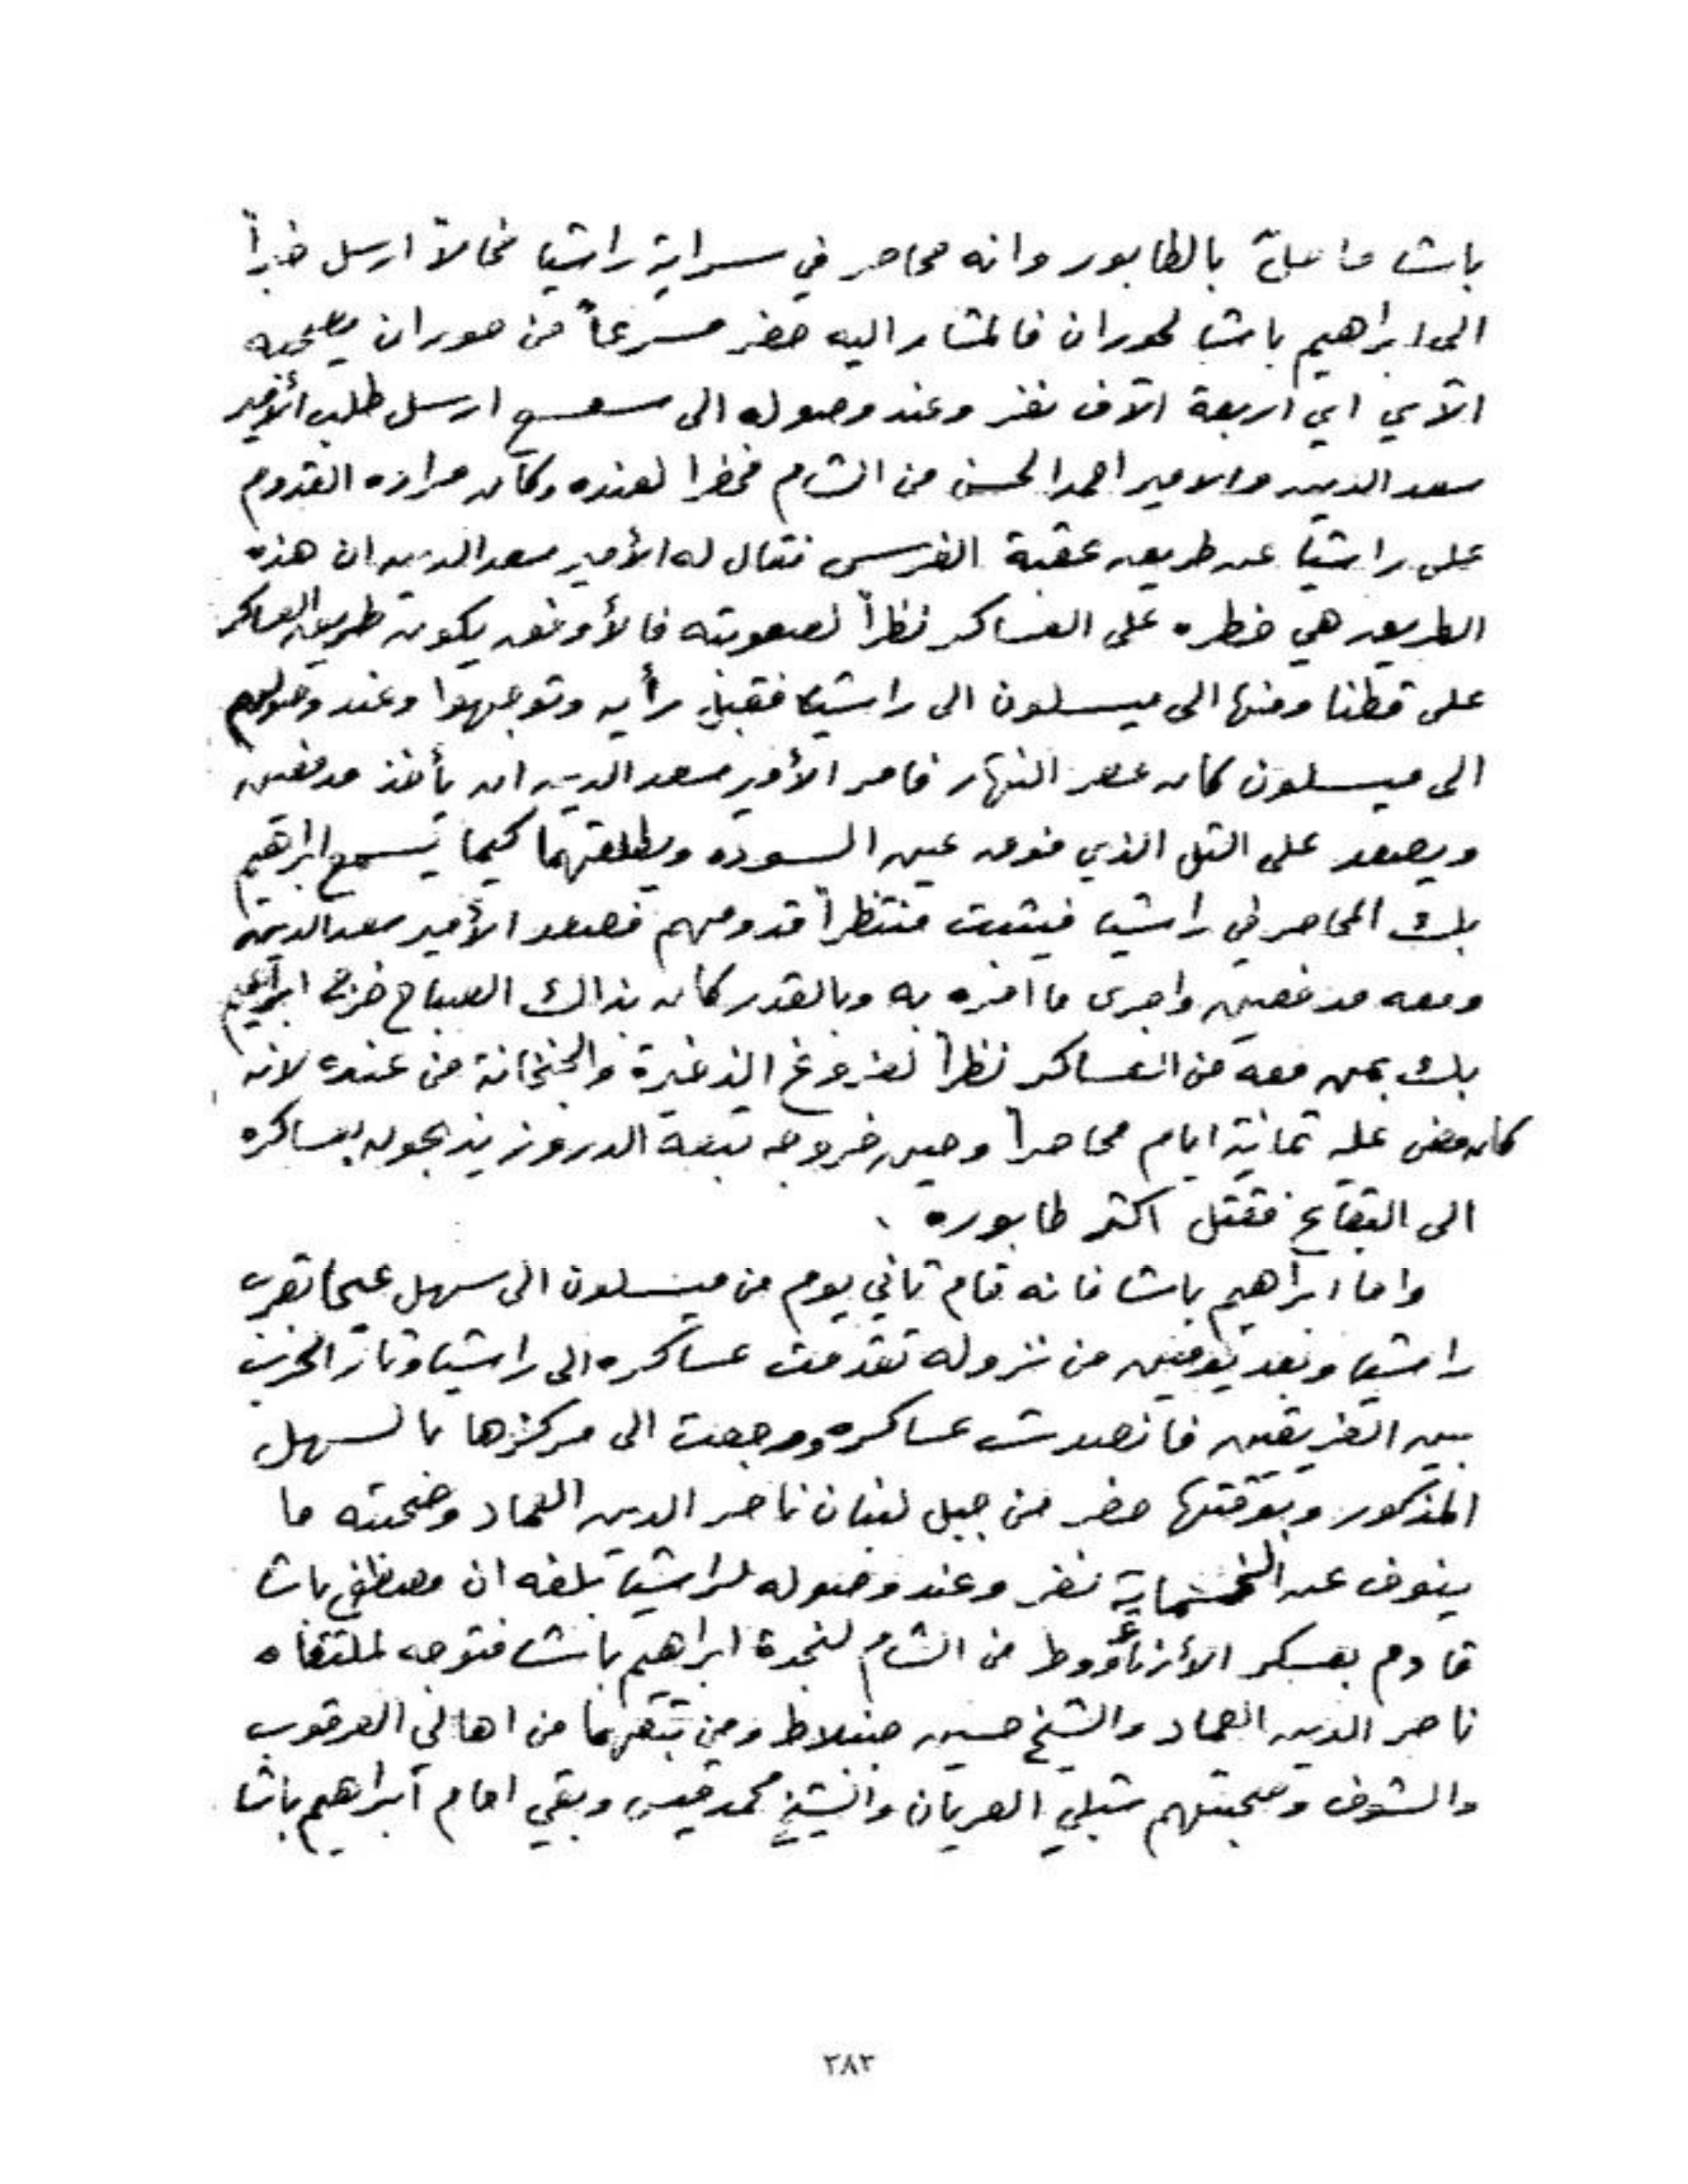 باشا ما حلّ بالطابور وانه محاصر في سراية راشيا فحالاً ارسل خبراً
الى ابراهيم باشا لحوران فالمشار اليه حضر مسرعاً من حوران يصحبه
الآي اي اربعة الآف نفر وعند وصوله الى سعسع ارسل طلب الأمير
سعد الدين والامير احمد الحسن من الشام فحضرا لعنده وكان مراده القدوم
على راشيا عن طريق عقبة الفرس فقال له الأمير سعد الدين ان هذه
الطريق هي خطره على العساكر نظراً لصعوبته فالأوفق يكون طريق العساكر
على قطنا ومنها الى ميسلون الى راشيا فقبل رأيه وتوجهوا وعند وصولهم
الى ميسلون كان عصر النهار فامر الأمير سعد الدين ان يأخذ مدفعين
ويصعد على التل الذي فوق عين السوده ويطلقهما كيما يسمع ابراهيم
بك المحاصر في راشيا فيثبت منتظراً قدومهم فصعد الأمير سعد الدين
ومعه مدفعين واجرى ما امره به وبالقدر كان بذاك الصباح خرج ابراهيم
بك بمن معه من العساكر نظراً لفروغ الذخيرة والجبخانة من عنده لانه
كان مضى عليه ثمانية ايام محاصراً وحين خروجه تبعه الدروز يذبحون بعساكره
الى البقاع فقتل اكثر طابوره
واما ابراهيم باشا فانه قام ثاني يوم من ميسلون الى سهل عيحا بقرب
راشيا وبعد يومين من نزوله تقدمت عساكره الى راشيا وثار الحرب
بين الفريقين فانصدت عساكره ورجعت الى مركزها بالسهل
المذكور وبوقتها حضر من جبل لبنان ناصر الدين العماد وصحبته ما
ينوف عن الخمسماية نفر وعند وصوله لراشيا بلغه ان مصطفى باشا
قادم بعسكر الأرناؤوط من الشام لنجدة ابراهيم باشا فتوجه لملتقاه
ناصر الدين العماد والشيخ حسين جنبلاط ومن تبعهما من اهالي العرقوب
والشوف وصحبتهم شبلي العريان والشيخ محمد قيس وبقي امام ابراهيم باشا
٣٨٣